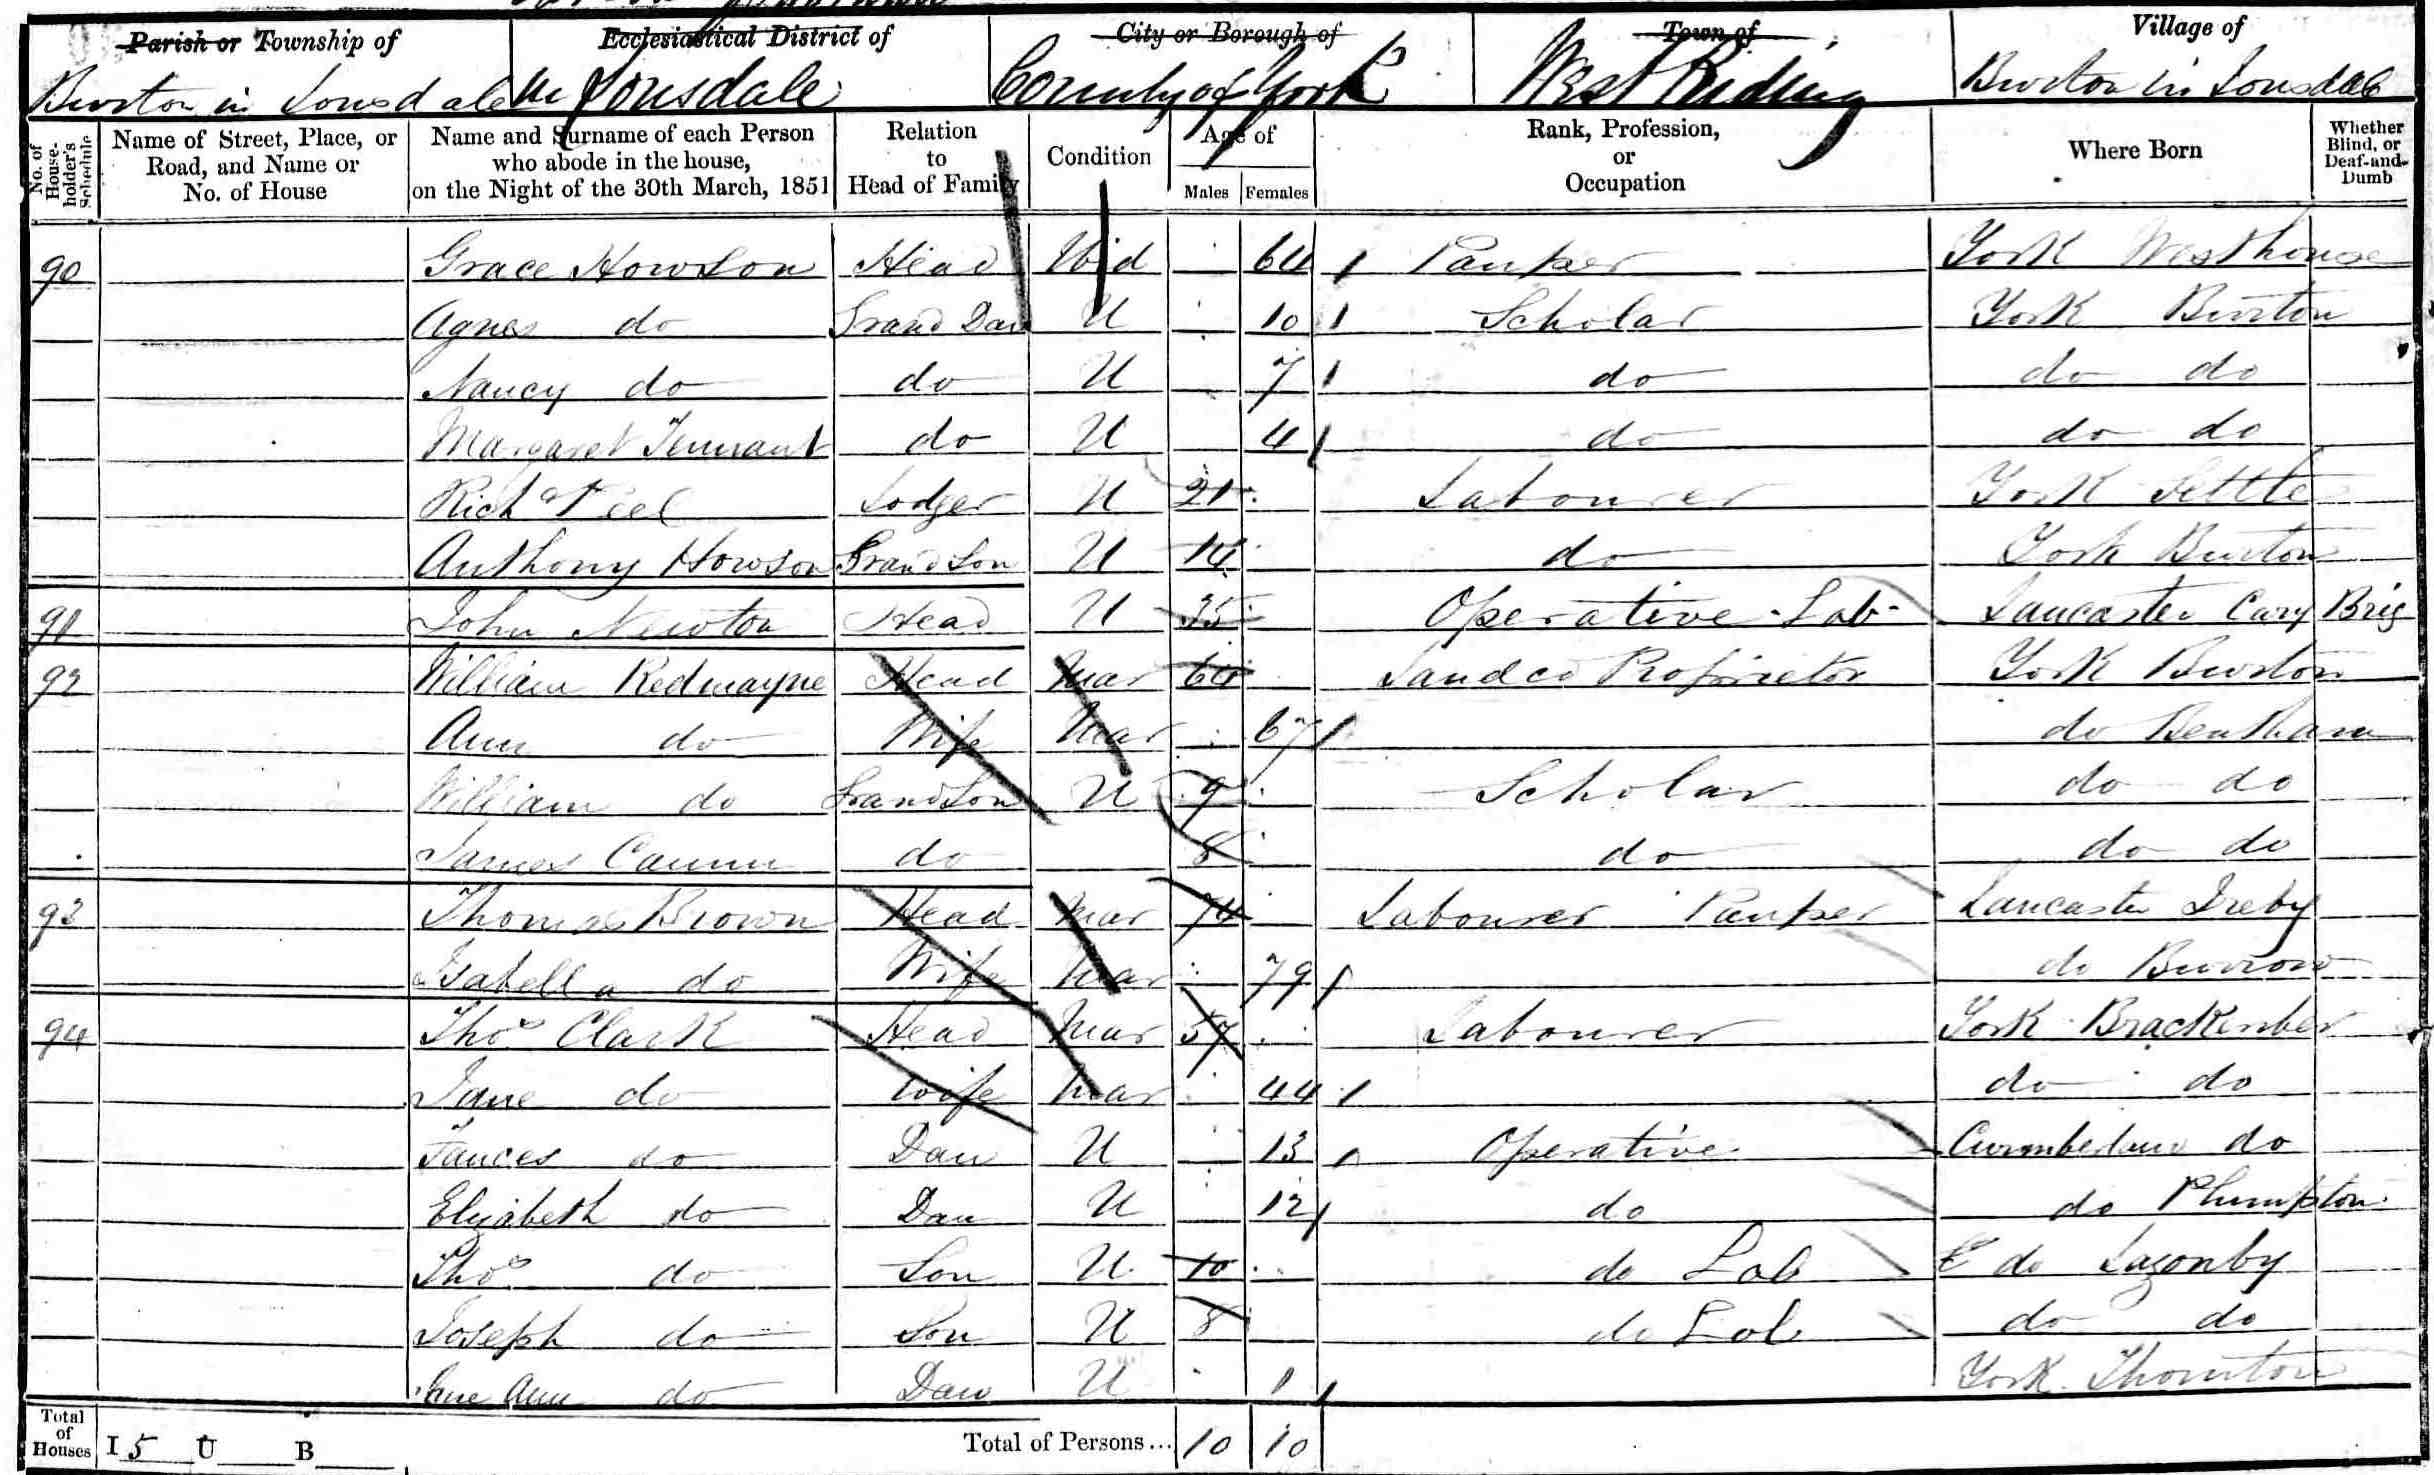 Parish or Township of Ecclesiastical District of City or Borough of Town of Village of
Burton in Lonsdale Lonsdale County of York West Riding Burton in Lonsdale
No. of House-holder's Schedule Name of Street, Place, or Road, and Name or No. of House Name and Surname of each Person who abode in the house, on the Night of the 30th March, 1851 Relation to Head of Family Condition Age of Males Females Rank, Profession, or Occupation Where Born Whether Blind, or Deaf-and-Dumb
90 Grace Howson Head Wid 64 Pauper York Westhouse
Agnes do Grand Dau U 10 Scholar York Burton
Nancy do do U 7 do do do
Margaret Tennant do U 4 do do do
Richd Peel Lodger U 21 Labourer York Settle
Anthony Howson Grand Son U 14 do York Burton
91 John Newton Head U 35 Operative Lab Lancaster Cary Brig
92 William Redmayne Head Mar Landed Proprietor York Burton
Ann do Wife Mar 67 do Bentham
William do Grand Son U 9 Scholar do do
James do 8 do do do
93 Thomas Brown Head Mar 74 Labourer Pauper Lancaster Ireby
Isabella do Wife Mar 79 do Burrow
94 Thos Clark Head Mar 57 Labourer York Brackenber
Jane do Wife Mar 44 do do
do Dau U 13 Operative Cumberland do
Elizabeth do Dau U 12 do do Plumpton
Thos do Son U 10 do Lab do Lazonby
Joseph do Son U 8 do Lab do do
Ann do Dau U 1 York Thornton
Total of Houses I 5 U B Total of Persons... 10 10